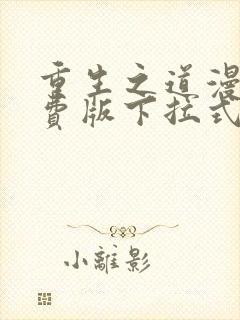 重生之道漫
费版下拉式
小離影